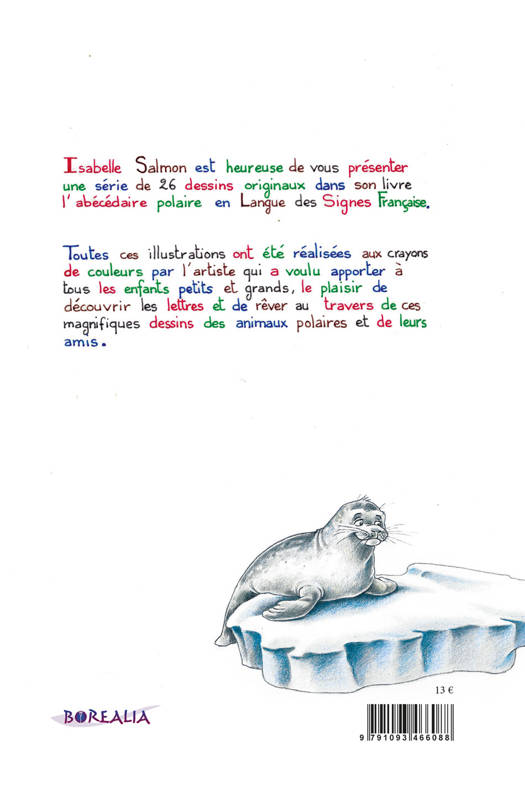 Isabelle Salmon est heureuse de vous présenter
une série de 26 dessins originaux dans son livre
l'abécédaire polaire en Langue des Signes Française.
Toutes ces illustrations ont été réalisées aux crayons
de couleurs par l'artiste qui a voulu apporter à
tous les enfants petits et grands, le plaisir de
découvrir les lettres et de rêver au travers de ces
magnifiques dessins des animaux polaires et de leurs
amis.
13 €
BOREALIA
9 791093 466088